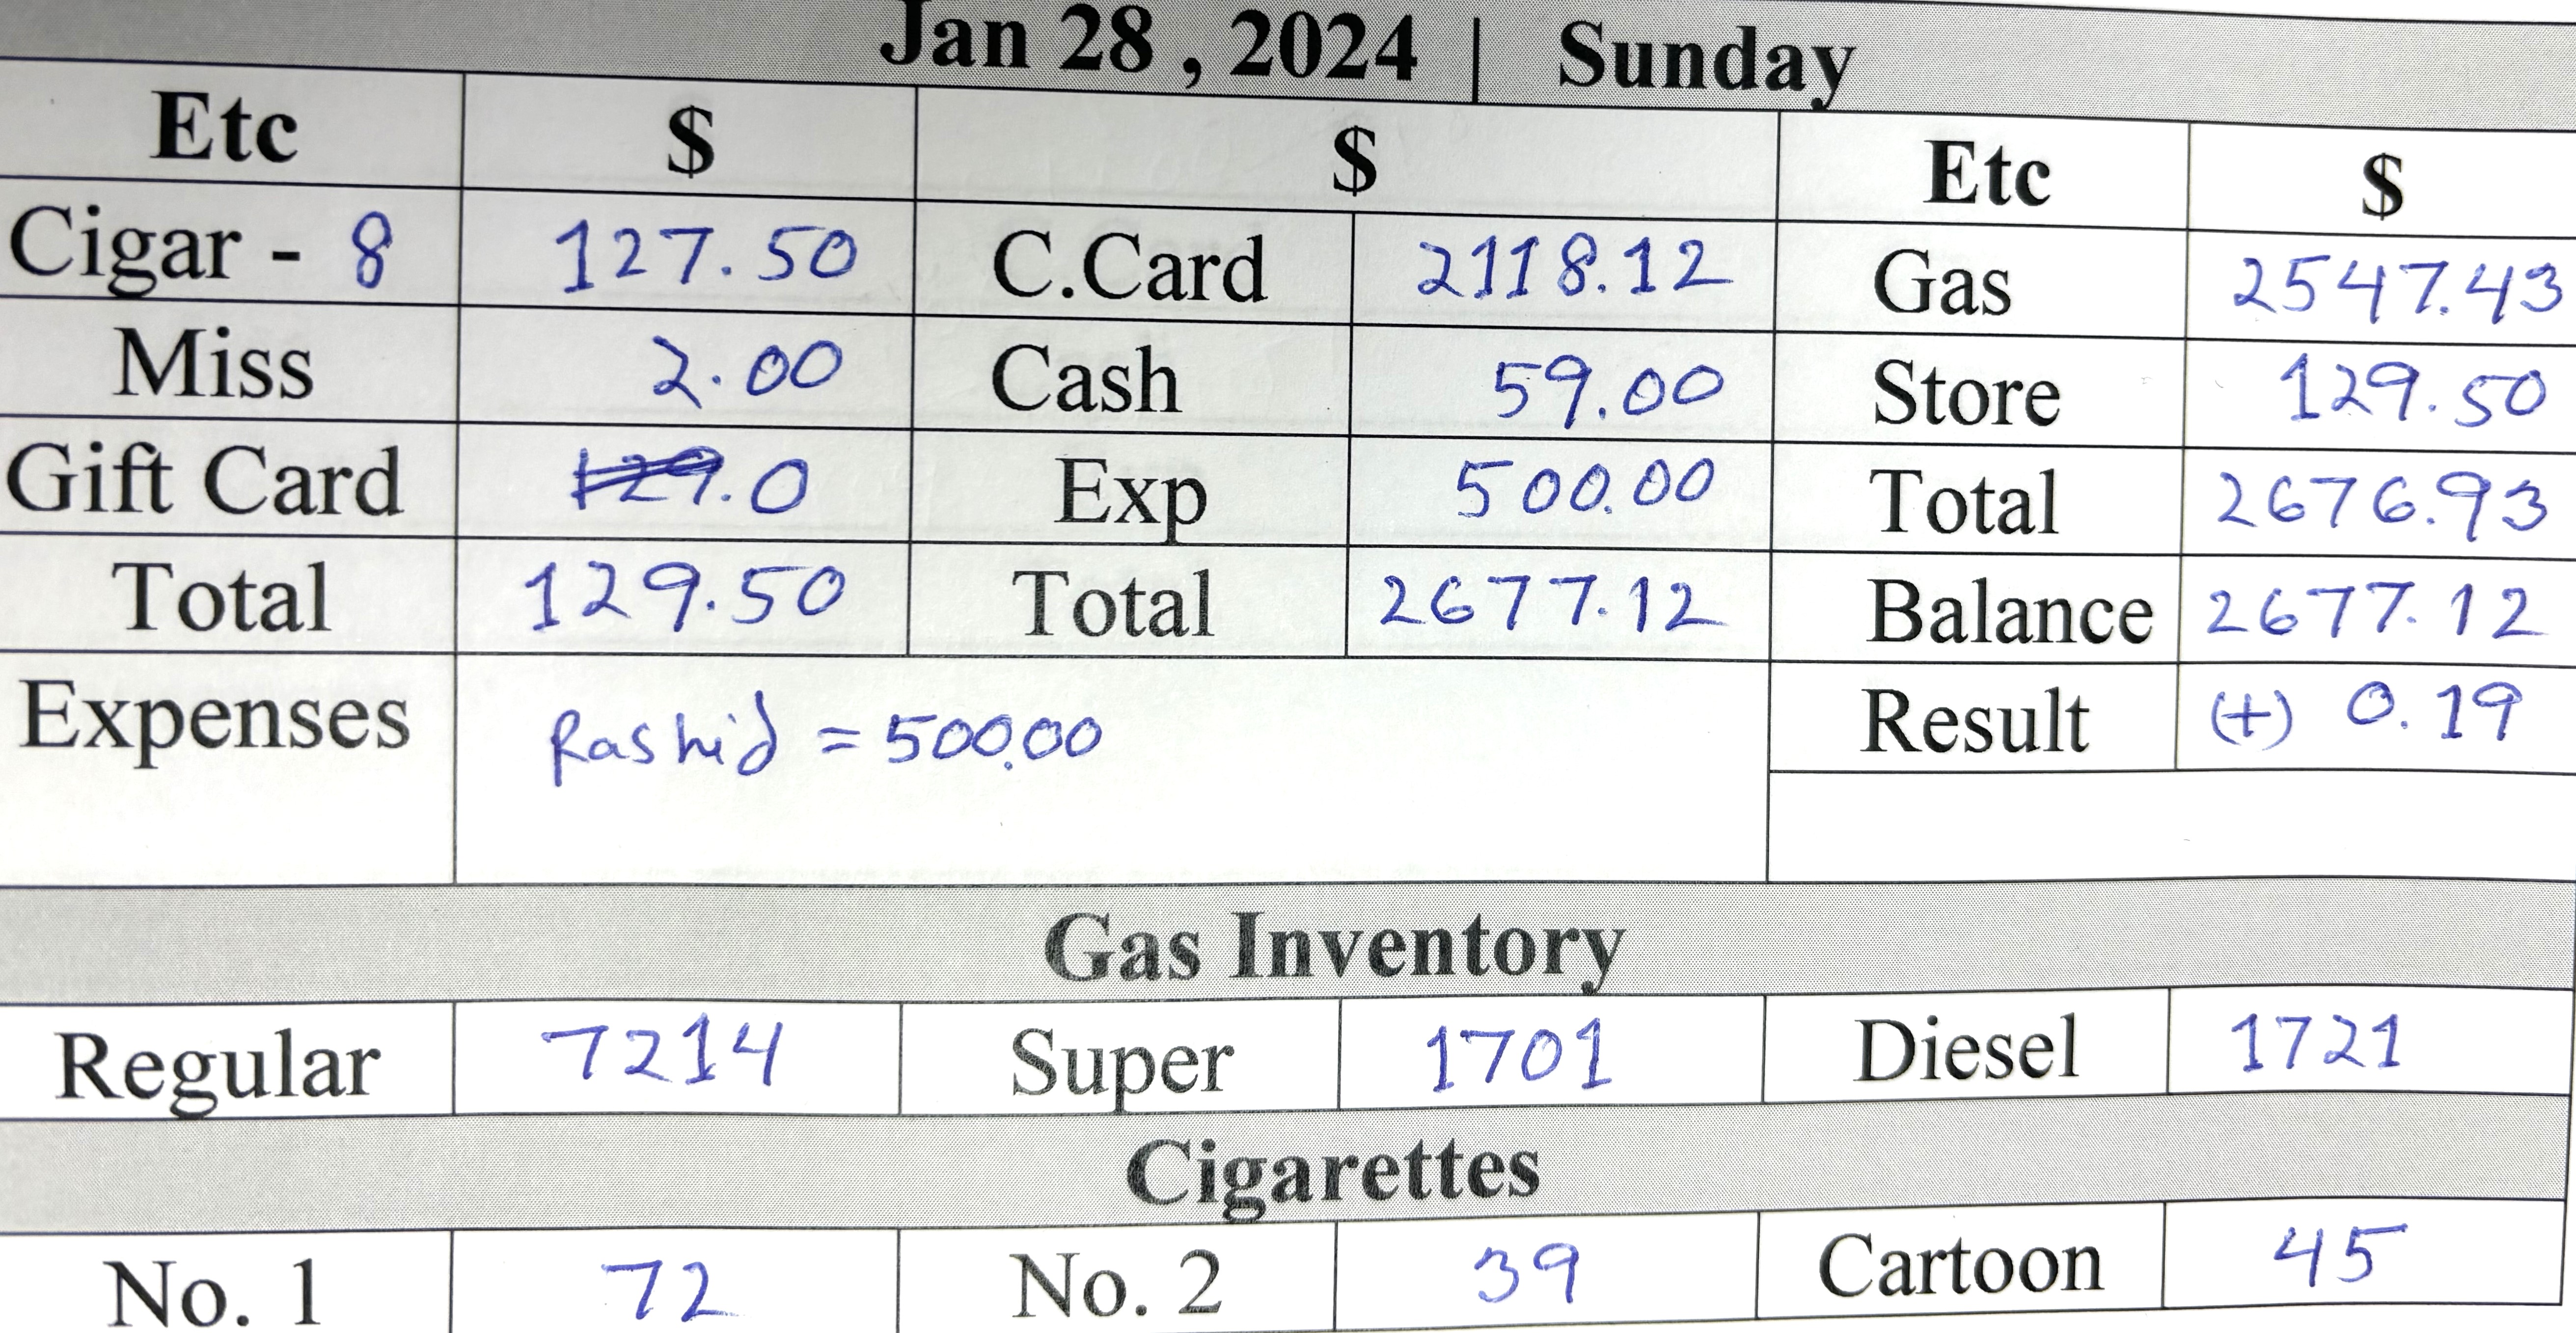 Jan 28 , 2024 | Sunday
Etc $ $ Etc $
Cigar - 8 127.50 C.Card 2118.12 Gas 2547.43
Miss 2.00 Cash 59.00 Store 129.50
Gift Card 129.0 Exp 500.00 Total 2676.93
Total 129.50 Total 2677.12 Balance 2677.12
Expenses Rashid = 500.00 Result (+) 0.19
Gas Inventory
Regular 7214 Super 1701 Diesel 1721
Cigarettes
No. 1 72 No. 2 39 Cartoon 45